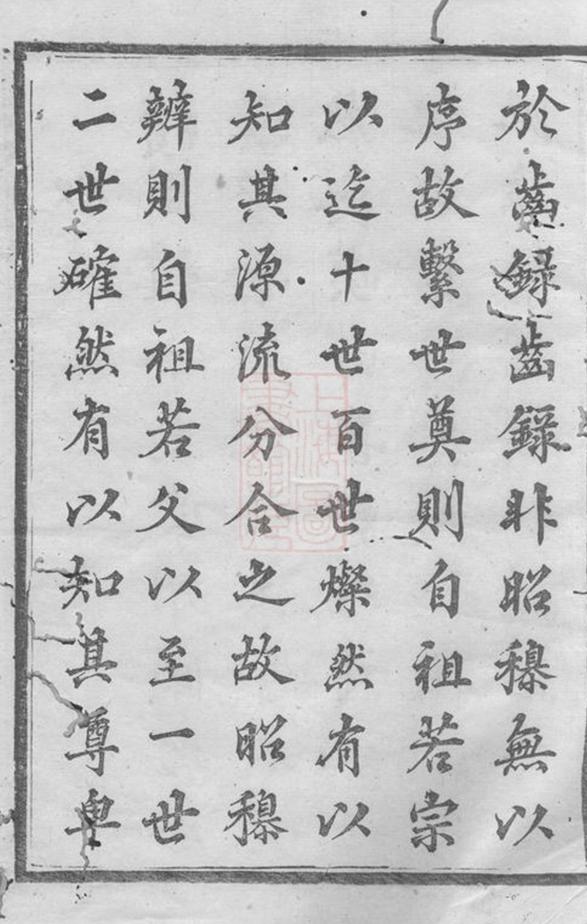 於齒録齒録非昭穆無以
序故繫世奠則自祖若宗
以迄十世百世燦然有以
知其源流分合之故昭穆
辨則自祖若父以至一世
二世確然有以知其尊卑
上海圖書館藏